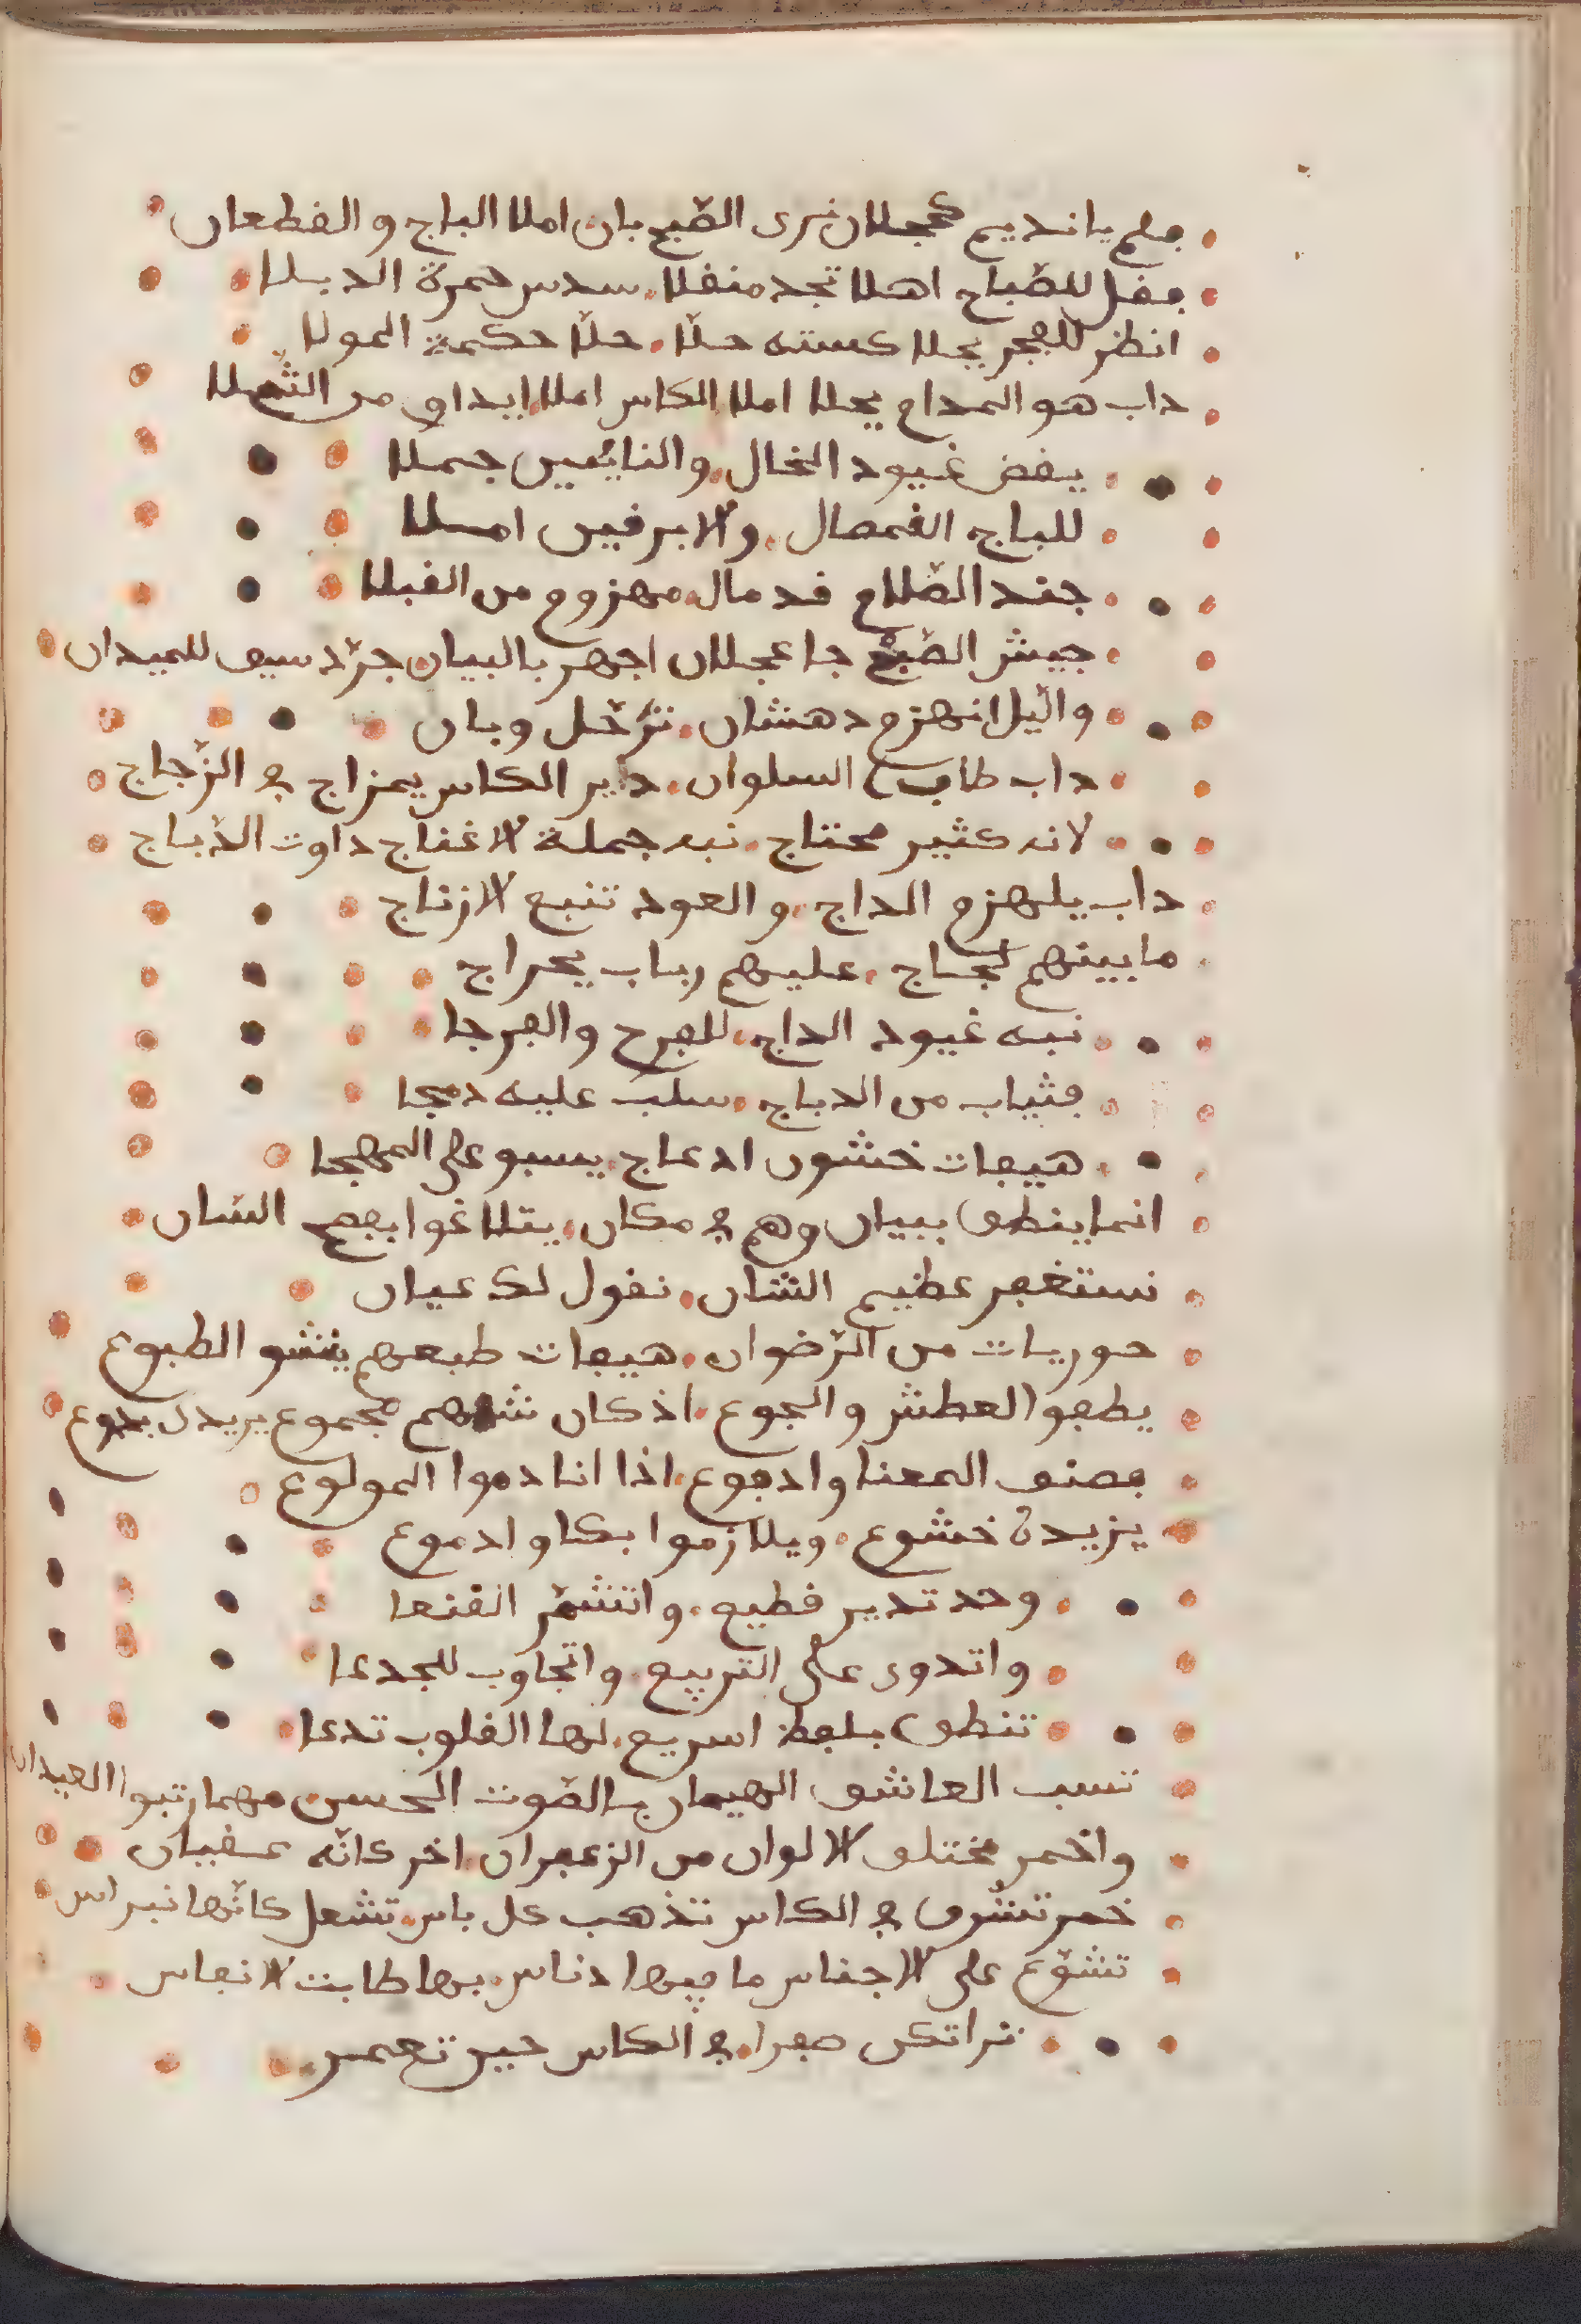 فلم يا نديم عجلان نرى الصّبح بان املا الباج والقطعان
فقل للصّباح اهلا تجد منفلا سدس حمرة الدبلا
انظر للفجر يجلا كسته حلّا حلّا حكمة المولا
داب هو المدام يحلا املا الكاس املا ايداوي من الثّملا
يفض غيود الخال والنايمين جملا
للباج القمصال والابرفيس امسلا
جند الظّلام قد مال مهزوم من القبلا
جيش الصّبح جا عجلان اجهر بالبيان جرّد سيف للميدان
والّيل انهزم دهشان ترّحل وبان
داب طاب السلوان دير الكاس يمزاج في الزّجاج
لانه كثير محتاج نبه جملة الاغناج داوت الدّباج
داب يلهزم الداج والعود تنبع الازناج
ما بينهم لجاج عليهم رباب يحراج
نبه غيود الداج للفرح والفرجا
فثياب من الدباج سلب عليه دمجا
هيفات خشون ادعاج يسبو على المهجا
انما ينطق ببيان وهم في مكان يتلاغوا بفصح السّان
نستغفر عظيم الشان نقول لك عيان
حوريات من الرّضوان هيفات طبعهم ينشو الطبوع
يطفوا العطش والجوع اذ كان شملهم مجموع يريدن بدوع
بصنف المعنا وادفوع اذا انادموا المولوع
يزيدن خشوع ويلازموا بكا وادموع
وحد تدير قطيع واتشمّر القنعا
واتدوى على التربيع واتجاوب للجدعا
تنطق بلفظ اسريع لها القلوب تدعا
تسب العاشق الهيمان بالصّوت الحسن مهما رتبوا العيدان
واخمر مختلف الالوان من الزعفران اخر كانّه عقيان
خمر تشرّق في الكاس تذهب كل باس تشعل كانّها نبراس
تشوّع على الاجناس ما فيها ادناس بها طابت الانفاس
تراتكن صفرا في الكاس حين تعمر